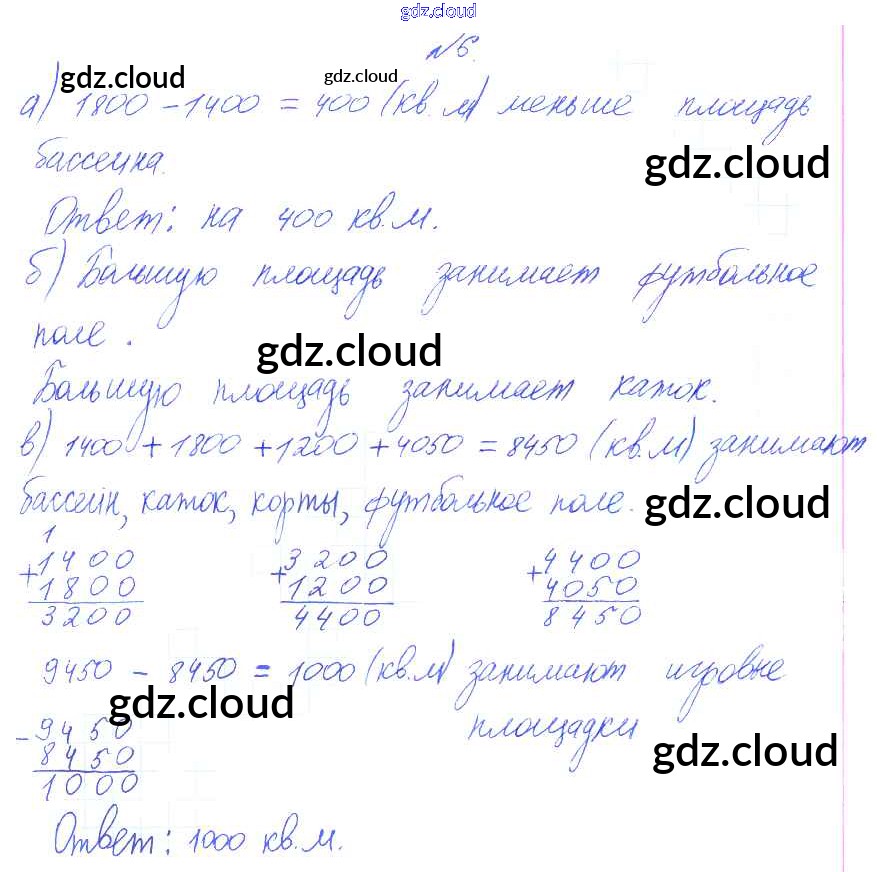 gdz.cloud
№6.
gdz.cloud gdz.cloud
а) 1800 - 1400 = 400 (кв. м) меньше площадь
бассейна.
gdz.cloud
Ответ: на 400 кв.м.
б) Большую площадь занимает футбольное
поле.
gdz.cloud
Большую площадь занимает каток.
в) 1400 + 1800 + 1200 + 4050 = 8450 (кв.м) занимают
бассейн, каток, корты, футбольное поле.
gdz.cloud
1
+ 1400 + 3200 + 4400
1800 1200 4050
3200 4400 8450
9450 - 8450 = 1000 (кв.м) занимают игровые
площадки
gdz.cloud
- 9450
8450
1000
gdz.cloud
Ответ: 1000 кв.м.